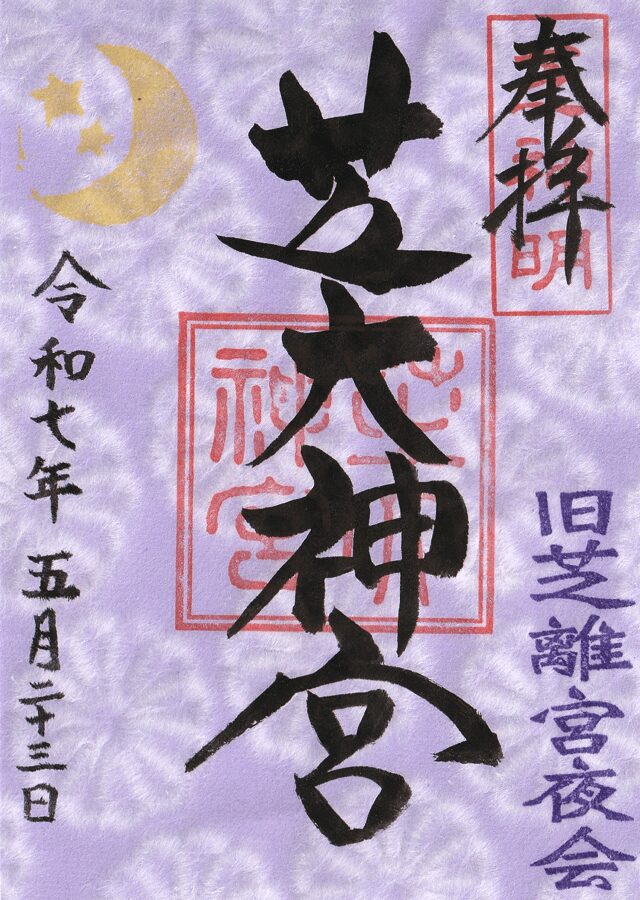 奉拝
元神明
旧芝離宮夜会
芝大神宮
芝大神宮
令和七年 五月二十三日